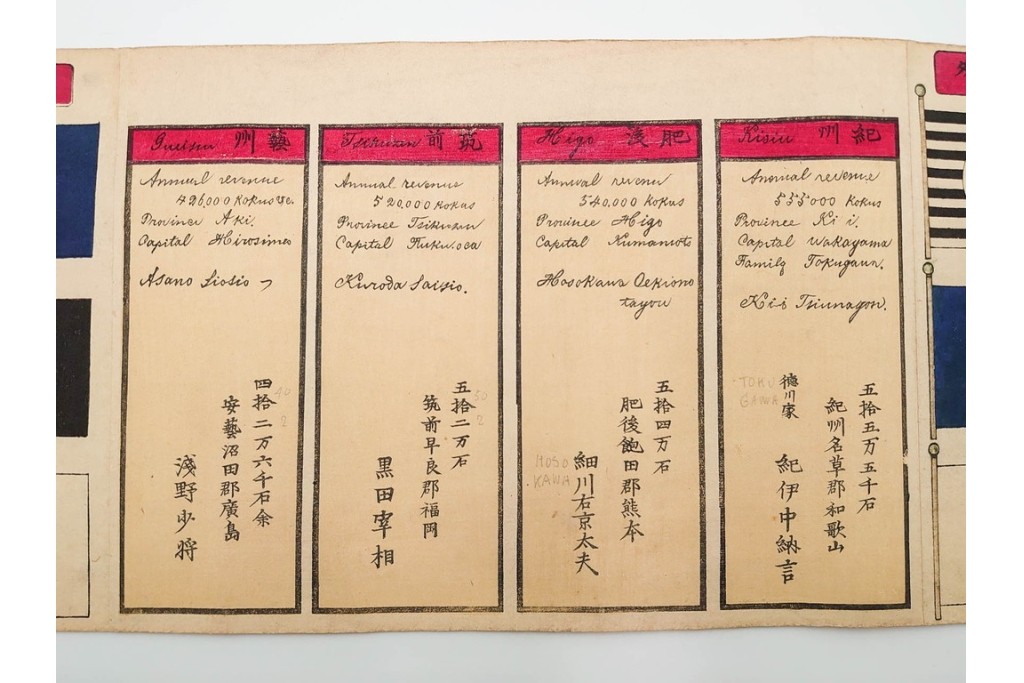 Gueisiu 藝州
Annual revenue
426,000 Kokus &c.
Province Aki.
Capital Hirosima
Asano Siosio
四拾二万六千石余
安藝沼田郡廣島
淺野少将
40
2
Tsikuzen 筑前
Annual revenue
520,000 Kokus
Province Tsikuzen
Capital Fukuoca
Kuroda Saisio.
五拾二万石
筑前早良郡福岡
黒田宰相
50
2
Higo 肥後
Annual revenu
540,000 Kokus
Province Higo
Capital Kumamoto
Hosokawa Oekiono
tayou
五拾四万石
肥後飽田郡熊本
細川右京太夫
HOSO
KAWA
Kisiu 紀州
Annual revenu
555,000 Kokus
Province Ki i.
Capital Wakayama
Family Tokugawa.
Kii Tsiunagon.
五拾五万五千石
紀州名草郡和歌山
徳川家
紀伊中納言
TOKU
GAWA